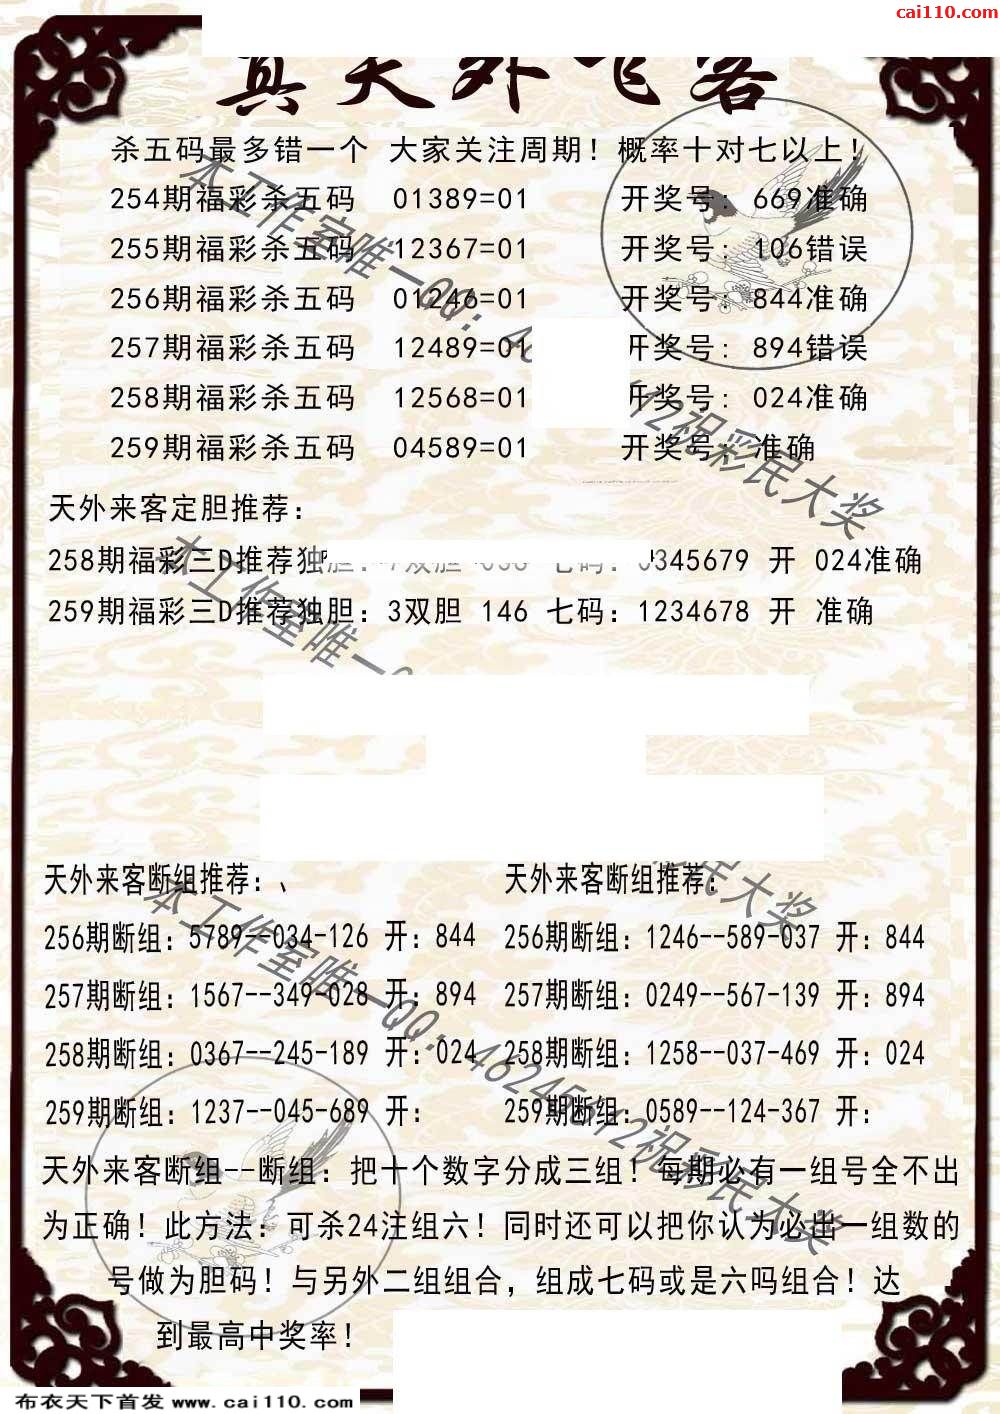 cai110.com
真天外飞客
杀五码最多错一个 大家关注周期！概率十对七以上！
254期福彩杀五码 01389=01 开奖号：669准确
255期福彩杀五码 12367=01 开奖号：106错误
256期福彩杀五码 01246=01 开奖号：844准确
257期福彩杀五码 12489=01 开奖号：894错误
258期福彩杀五码 12568=01 开奖号：024准确
259期福彩杀五码 04589=01 开奖号：准确
天外来客定胆推荐：
258期福彩三D推荐独胆： 双胆 七码：0345679 开 024准确
259期福彩三D推荐独胆：3双胆 146 七码：1234678 开 准确
天外来客断组推荐：、 天外来客断组推荐：
256期断组：5789--034-126 开：844 256期断组：1246--589-037 开：844
257期断组：1567--349-028 开：894 257期断组：0249--567-139 开：894
258期断组：0367--245-189 开：024 258期断组：1258--037-469 开：024
259期断组：1237--045-689 开： 259期断组：0589--124-367 开：
天外来客断组--断组：把十个数字分成三组！每期必有一组号全不出
为正确！此方法：可杀24注组六！同时还可以把你认为必出一组数的
号做为胆码！与另外二组组合，组成七码或是六吗组合！达
到最高中奖率！
本工作室唯一QQ：4 12祝彩民大奖
本工作室唯一
彩民大奖
本工作室唯一QQ：46245612祝彩民大奖
布衣天下首发 www.cai110.com